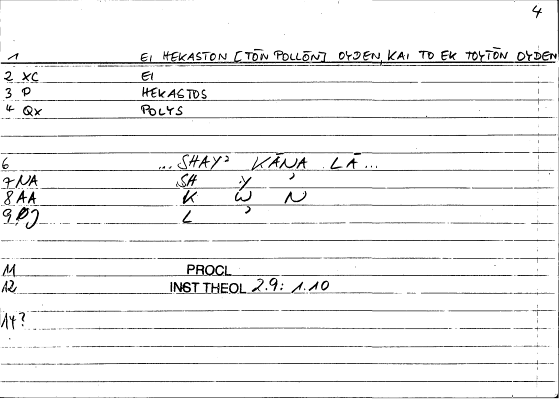 4
1 EI HEKASTON [TŌN POLLŌN] OYDEN, KAI TO EK TOYTŌN OYDEN
2 XC EI
3 P HEKASTOS
4 Qx POLYS
6 ...SHAYʾ KĀNA LĀ...
7 NA SH Y ʾ
8 AA K W N
9 DJ L ʾ
11 PROCL
12 INST THEOL 2.9: 1.10
14?